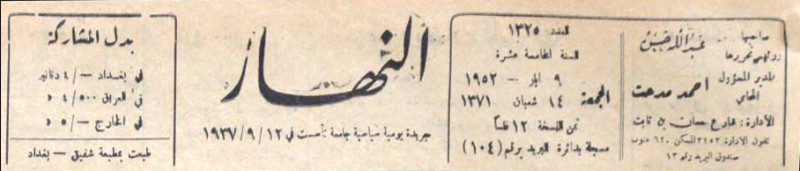 صاحبها
ورئيس تحريرها عبد الله حسن
المدير المسؤول
المحامي احمد مدحت
الادارة : شارع حسان بن ثابت
تلفون الادارة ٣٢٥٢ المسكن ٦٢٠ جنوب
صندوق البريد رقم ١٣
العدد ١٣٢٥
السنة الخامسة عشرة
٩ ايار — ١٩٥٢
الجمعة ١٤ شعبان ١٣٧١
ثمن النسخة ١٢ فلسا
مسجلة بدائرة البريد برقم (١٠٤)
النهار
جريدة يومية سياسية جامعة تأسست في ١٩٣٧/٩/١٢
بدل المشاركة
في بغداد —/٤ دنانير
في العراق ٤/٥٠٠ د
في الخارج —/٥ د
طبعت بمطبعة شفيق — بغداد